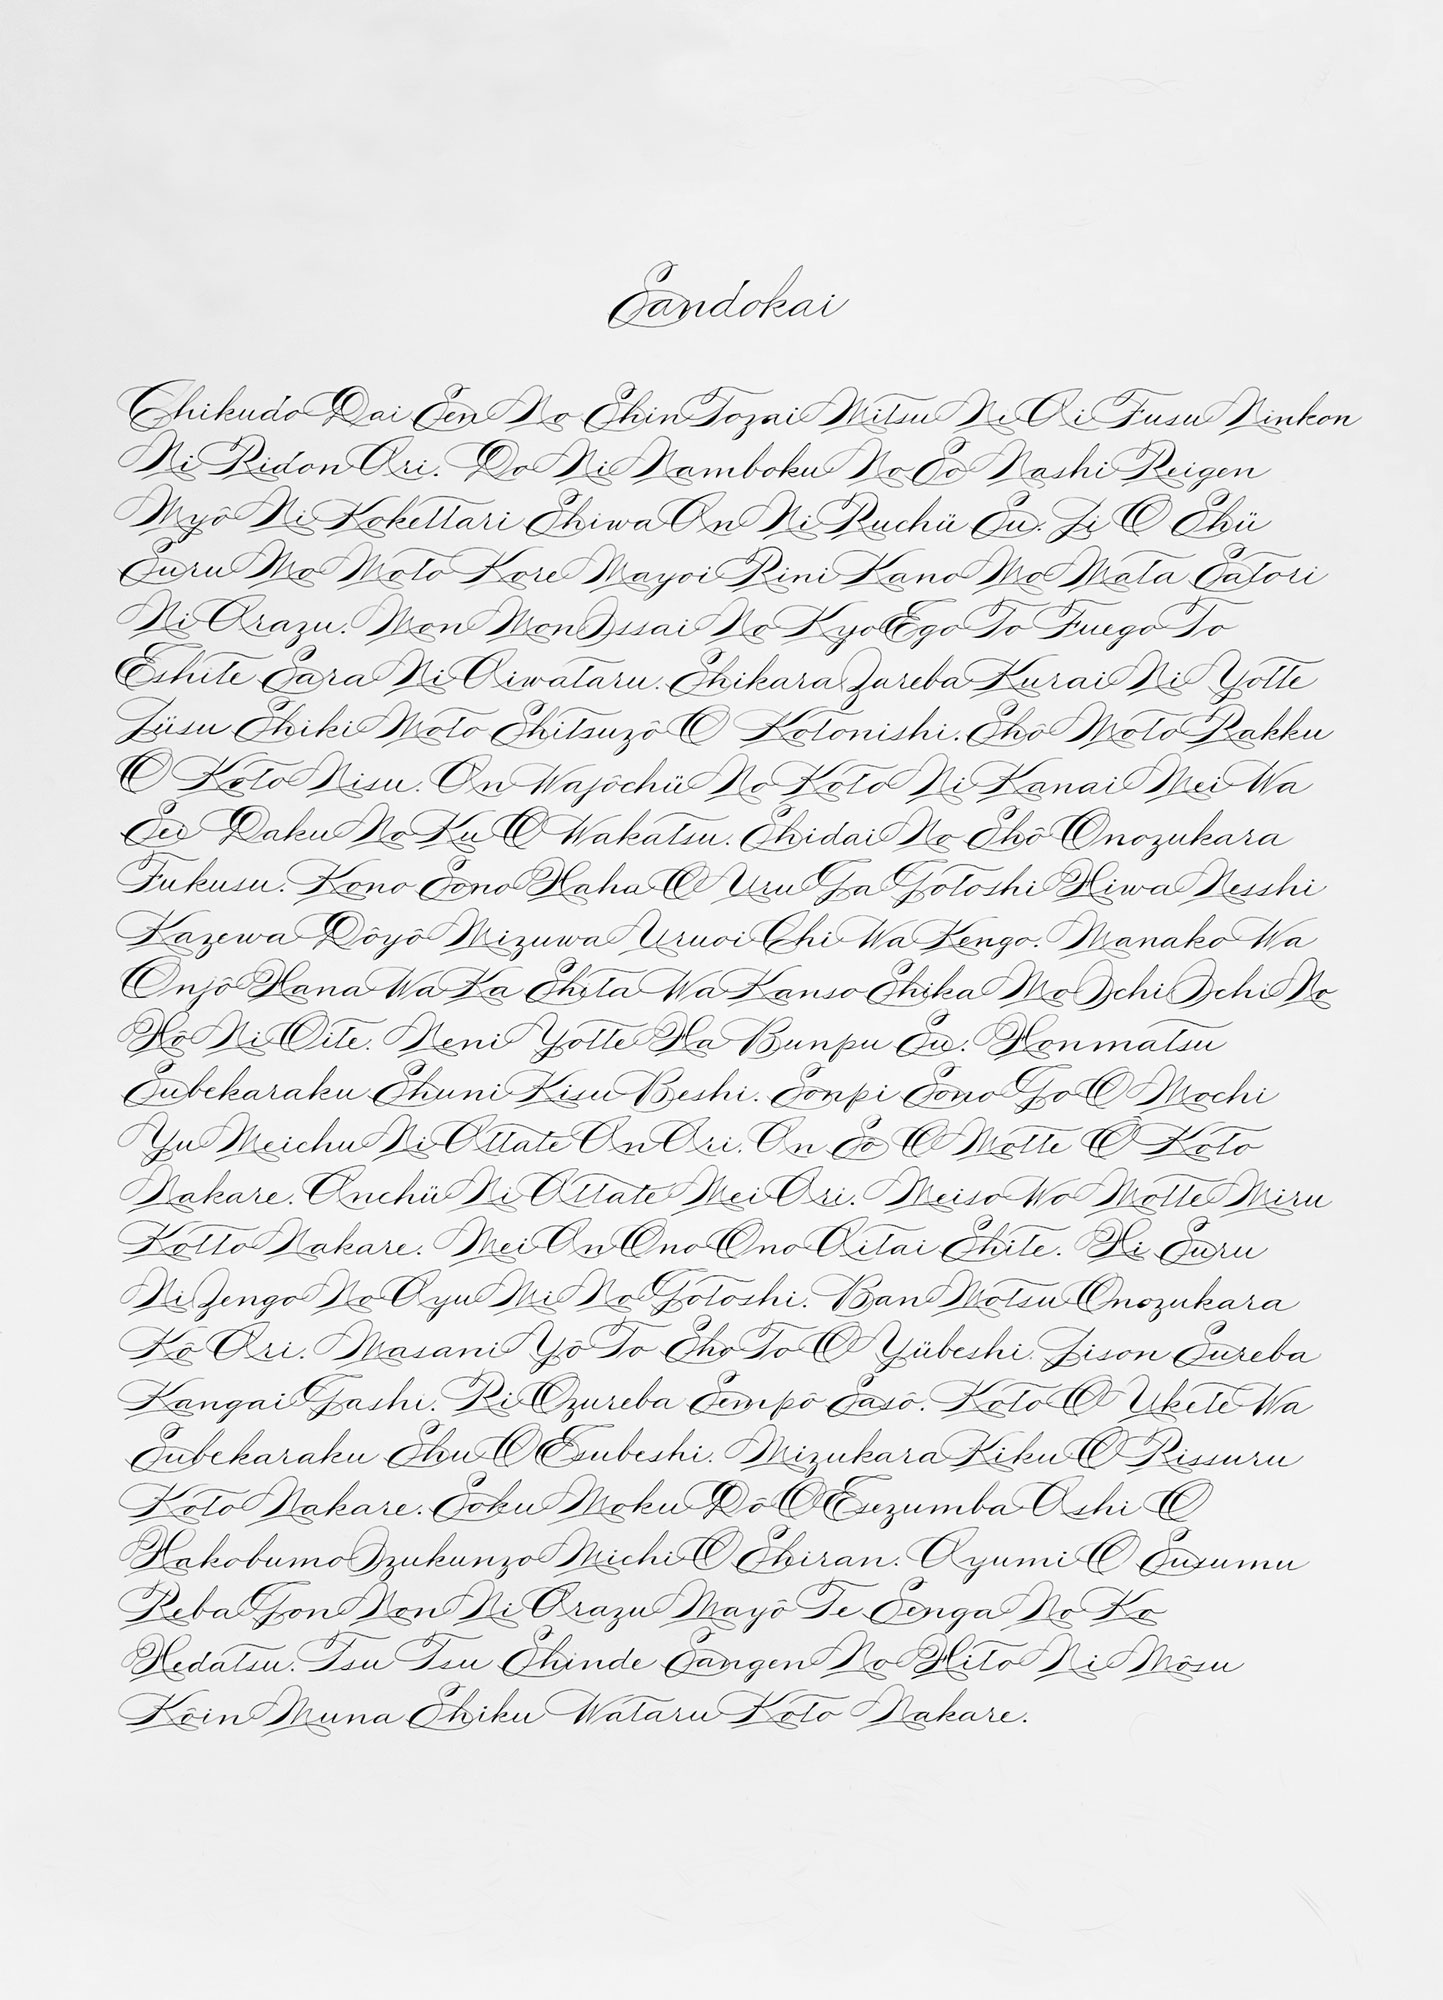 Sandokai
Chikudo Dai Sen No Shin Tozai Mitsu Ni Ai Fusu Ninkon
Ni Ridon Ari. Do Ni Namboku No So Nashi Reigen
Myô Ni Kokettari Shiwa An Ni Ruchü Su. Ji O Shü
Suru Mo Moto Kore Mayoi Rini Kano Mo Mata Satori
Ni Arazu. Mon Mon Issai No Kyo Ego To Fuego To
Eshite Sara Ni Aiwataru. Shikara Zareba Kurai Ni Yotte
Jüsu Shiki Moto Shitsuzô O Kotonishi. Shô Moto Rakku
O Koto Nisu. An Wajôchü No Koto Ni Kanai Mei Wa
Sei Daku No Ku O Wakatsu. Shidai No Shô Onozukara
Fukusu. Kono Sono Haha O Uru Ga Gotoshi Hiwa Nesshi
Kazewa Dôyô Mizuwa Uruoi Chi Wa Kengo. Manako Wa
Onjô Hana Wa Ka Shita Wa Kanso Shika Mo Ichi Ichi No
Hô Ni Oite. Neni Yotte Ha Bunpu Su. Honmatsu
Subekaraku Shuni Kisu Beshi. Sonpi Sono Go O Mochi
Yu Meichu Ni Attate An Ari. An So O Motte O Koto
Nakare. Anchü Ni Attate Mei Ari. Meiso Wo Motte Miru
Kotto Nakare. Mei An Ono Ono Aitai Shite. Hi Suru
Ni Zengo No Ayu Mi No Gotoshi. Ban Motsu Onozukara
Kô Ari. Masani Yô To Sho To O Yübeshi. Jison Sureba
Kangai Gashi. Ri Ozureba Sempô Sasô. Koto O Ukete Wa
Subekaraku Shu O Esubeshi. Mizukara Kiku O Rissuru
Koto Nakare. Soku Moku Dô O Esezumba Ashi O
Hakobumo Izukunzo Michi O Shiran. Ayumi O Susumu
Reba Gon Non Ni Arazu Mayô Te Senga No Ko
Hedatsu. Tsu Tsu Shinde Sangen No Hito Ni Môsu
Kôin Muna Shiku Wataru Koto Nakare.